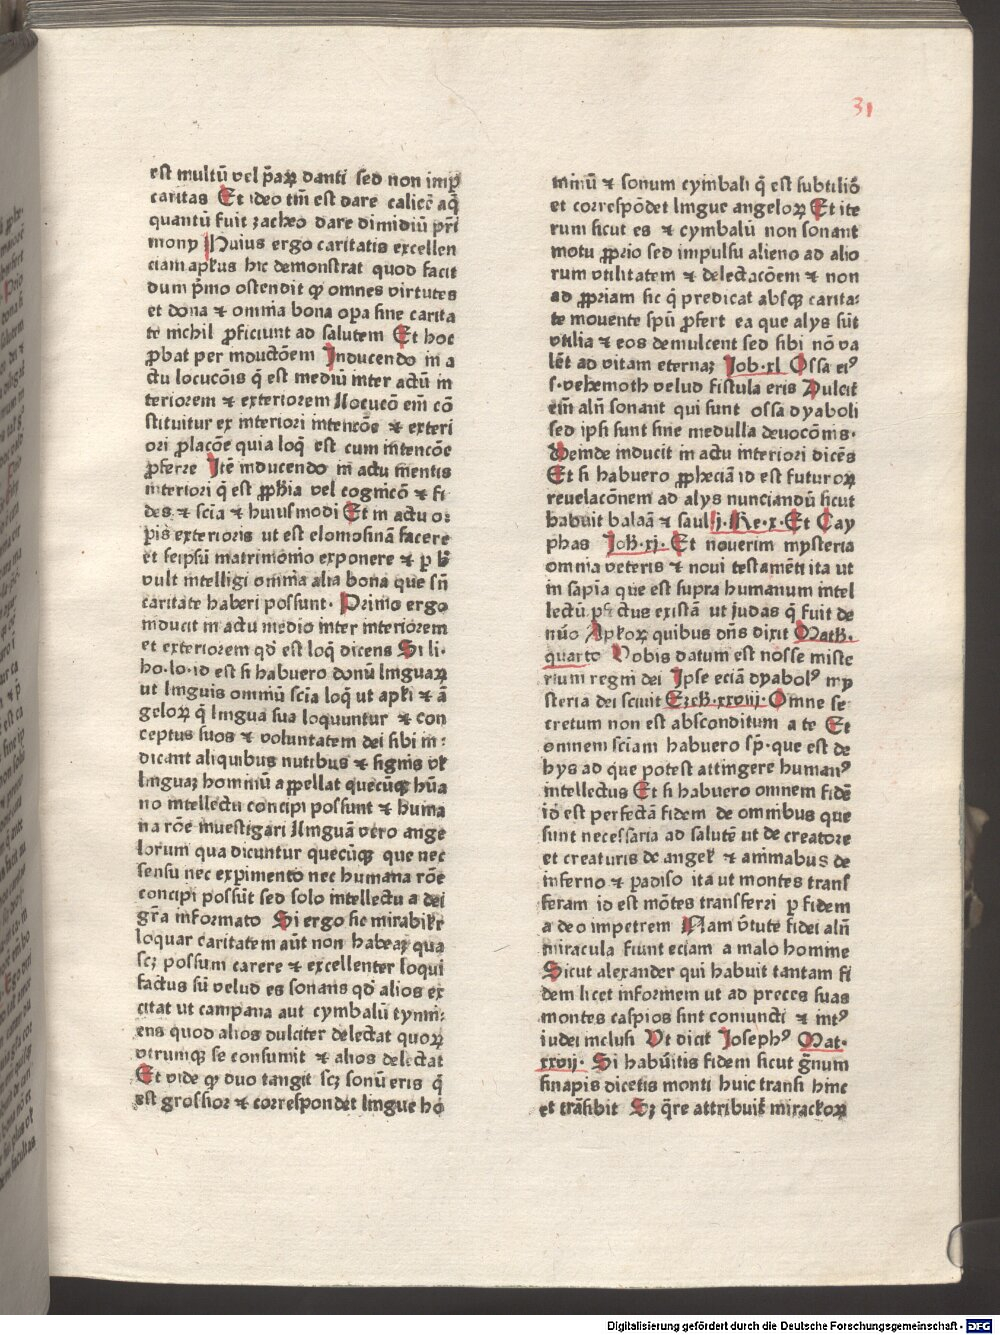 31
est multū vel p̄aꝝ danti sed non imp̄
caritas Et ideo tm̄ est dare calicē aq̄
quantū fuit zacheo dare dimidiū pr̄i
mony Huius ergo caritatis excellen
ciam apl̄us hic demonstrat quod facit
dum p̄mo ostendit qꝫ omnes virtutes
et dona ⁊ omnia bona oꝑa sine carita
te nichil ꝓficiunt ad salutem Et hoc
ꝓbat per inductōem Inducendo in a
ctu locucōis q̄ est mediū inter actū in
teriorem ⁊ exteriorem Nocucō em̄ cō
stituitur ex interiori intencōe ⁊ exteri
ori ꝓlacōe quia loq̄ est cum intencōe
ꝓferre Itē inducendo in actu mentis
interiori q̄ est ꝓph̄ia vel cognicō ⁊ fi
des ⁊ scīa ⁊ huiusmodi Et in actu o:
ꝑis exterioris ut est elomosinā facere
et seipsū matrimonio exponere ⁊ ꝑ h̄
vult intelligi omnia alia bona que sn̄
caritate haberi possunt· Primo ergo
inducit in actu medio inter interiorem
et exteriorem qd̄ est loq̄ dicens Si li·
ho·lo·id est si habuero donū linguaꝝ
ut linguis omniū scia loq̄ ut apl̄i ⁊ ā
geloꝝ q̄ lingua sua loquuntur ⁊ con
ceptus suos ⁊ voluntatem dei sibi in:
dicant aliquibus nutibus ⁊ signis vl̄
linguaꝫ hominū appellat quecūqꝫ hūa
no intellectu concipi possunt ⁊ huma
na rōe inuestigari Linguā vero ange
lorum qua dicuntur quecūqꝫ que nec
sensu nec exꝑimento nec humana rōe
concipi possūt sed solo intellectu a dei
gr̄a informato Si ergo sic mirabilr̄
loquar caritatem aūt non habeaꝫ qua
scꝫ possum carere ⁊ excellenter loqui
factus sū velud es sonans qd̄ alios ex
citat ut campana aut cymbalū tynni:
ens quod alios dulciter delectat quoꝝ
vtrumqꝫ se consumit ⁊ alios delectat
Et vide qꝫ duo tangit scꝫ sonū eris q̄
est grossior ⁊ correspondet lingue ho
minū ⁊ sonum cymbali q̄ est subtilio᷑
et correspōdet lingue angeloꝝ Et ite
rum sicut es ⁊ cymbalū non sonant
motu ꝓprio sed impulsu alieno ad alio
rum vtilitatem ⁊ delectacōem ⁊ non
ad ꝓpriam sic q̄ predicat absqꝫ carita:
te mouente spū ꝓfert ea que alys sūt
vtilia ⁊ eos demulcent sed sibi nō va
lēt ad vitam eternaꝫ Job·xl Ossa eiꝰ
s·vehemoth velud fistula eris Dulcit
em̄ aln̄ sonant qui sunt ossa dyaboli
sed ipsi sunt sine medulla deuocōnis·
Deinde inducit in actu interiori dicēs
Et si habuero ꝓpheciā id est futuroꝝ
reuelacōnem ad alys nunciandū sicut
habuit balaā ⁊ saul j·Re·x·Et Cay
phas Joh̄·xj·Et nouerim mysteria
omnia veteris ⁊ noui testamēti ita ut
in sapīa que est supra humanum intel
lectū ꝑfectus existā ut judas q̄ fuit de
nūo Apl̄oꝝ quibus dn̄s dixit Math̄·
quarto Vobis datum est nosse miste
rium regni dei Ipse eciā dyabolꝰ my
steria dei sciuit Ezeh̄·xxviij·Omne se
cretum non est absconditum a te Et
omnem sciam habuero sp̄·que est de
hys ad que potest attingere humanꝰ
intellectus Et si habuero omnem fidē
id est perfectā fidem de omnibus que
sunt necessaria ad salutē ut de creatore
et creaturis de angel̄ ⁊ animabus de
inferno ⁊ ꝑadiso ita ut montes trans
feram id est mōtes transferri ꝑ fidem
a deo impetrem Nam v̄tute fidei aln̄
miracula fiunt eciam a malo homine
Sicut alexander qui habuit tantam fi
dem licet informem ut ad preces suas
montes caspios sint coniuncti ⁊ intꝰ
iudei inclusi Ut dicit Josephꝰ Mat·
xxvij· Si habūitis fidem sicut g̃num
sinapis dicetis monti huic transi hinc
et trāsibit Sꝫ q̄re attribuit᷑ miraclorꝝ
Digitalisierung gefördert durch die Deutsche Forschungsgemeinschaft · DFG